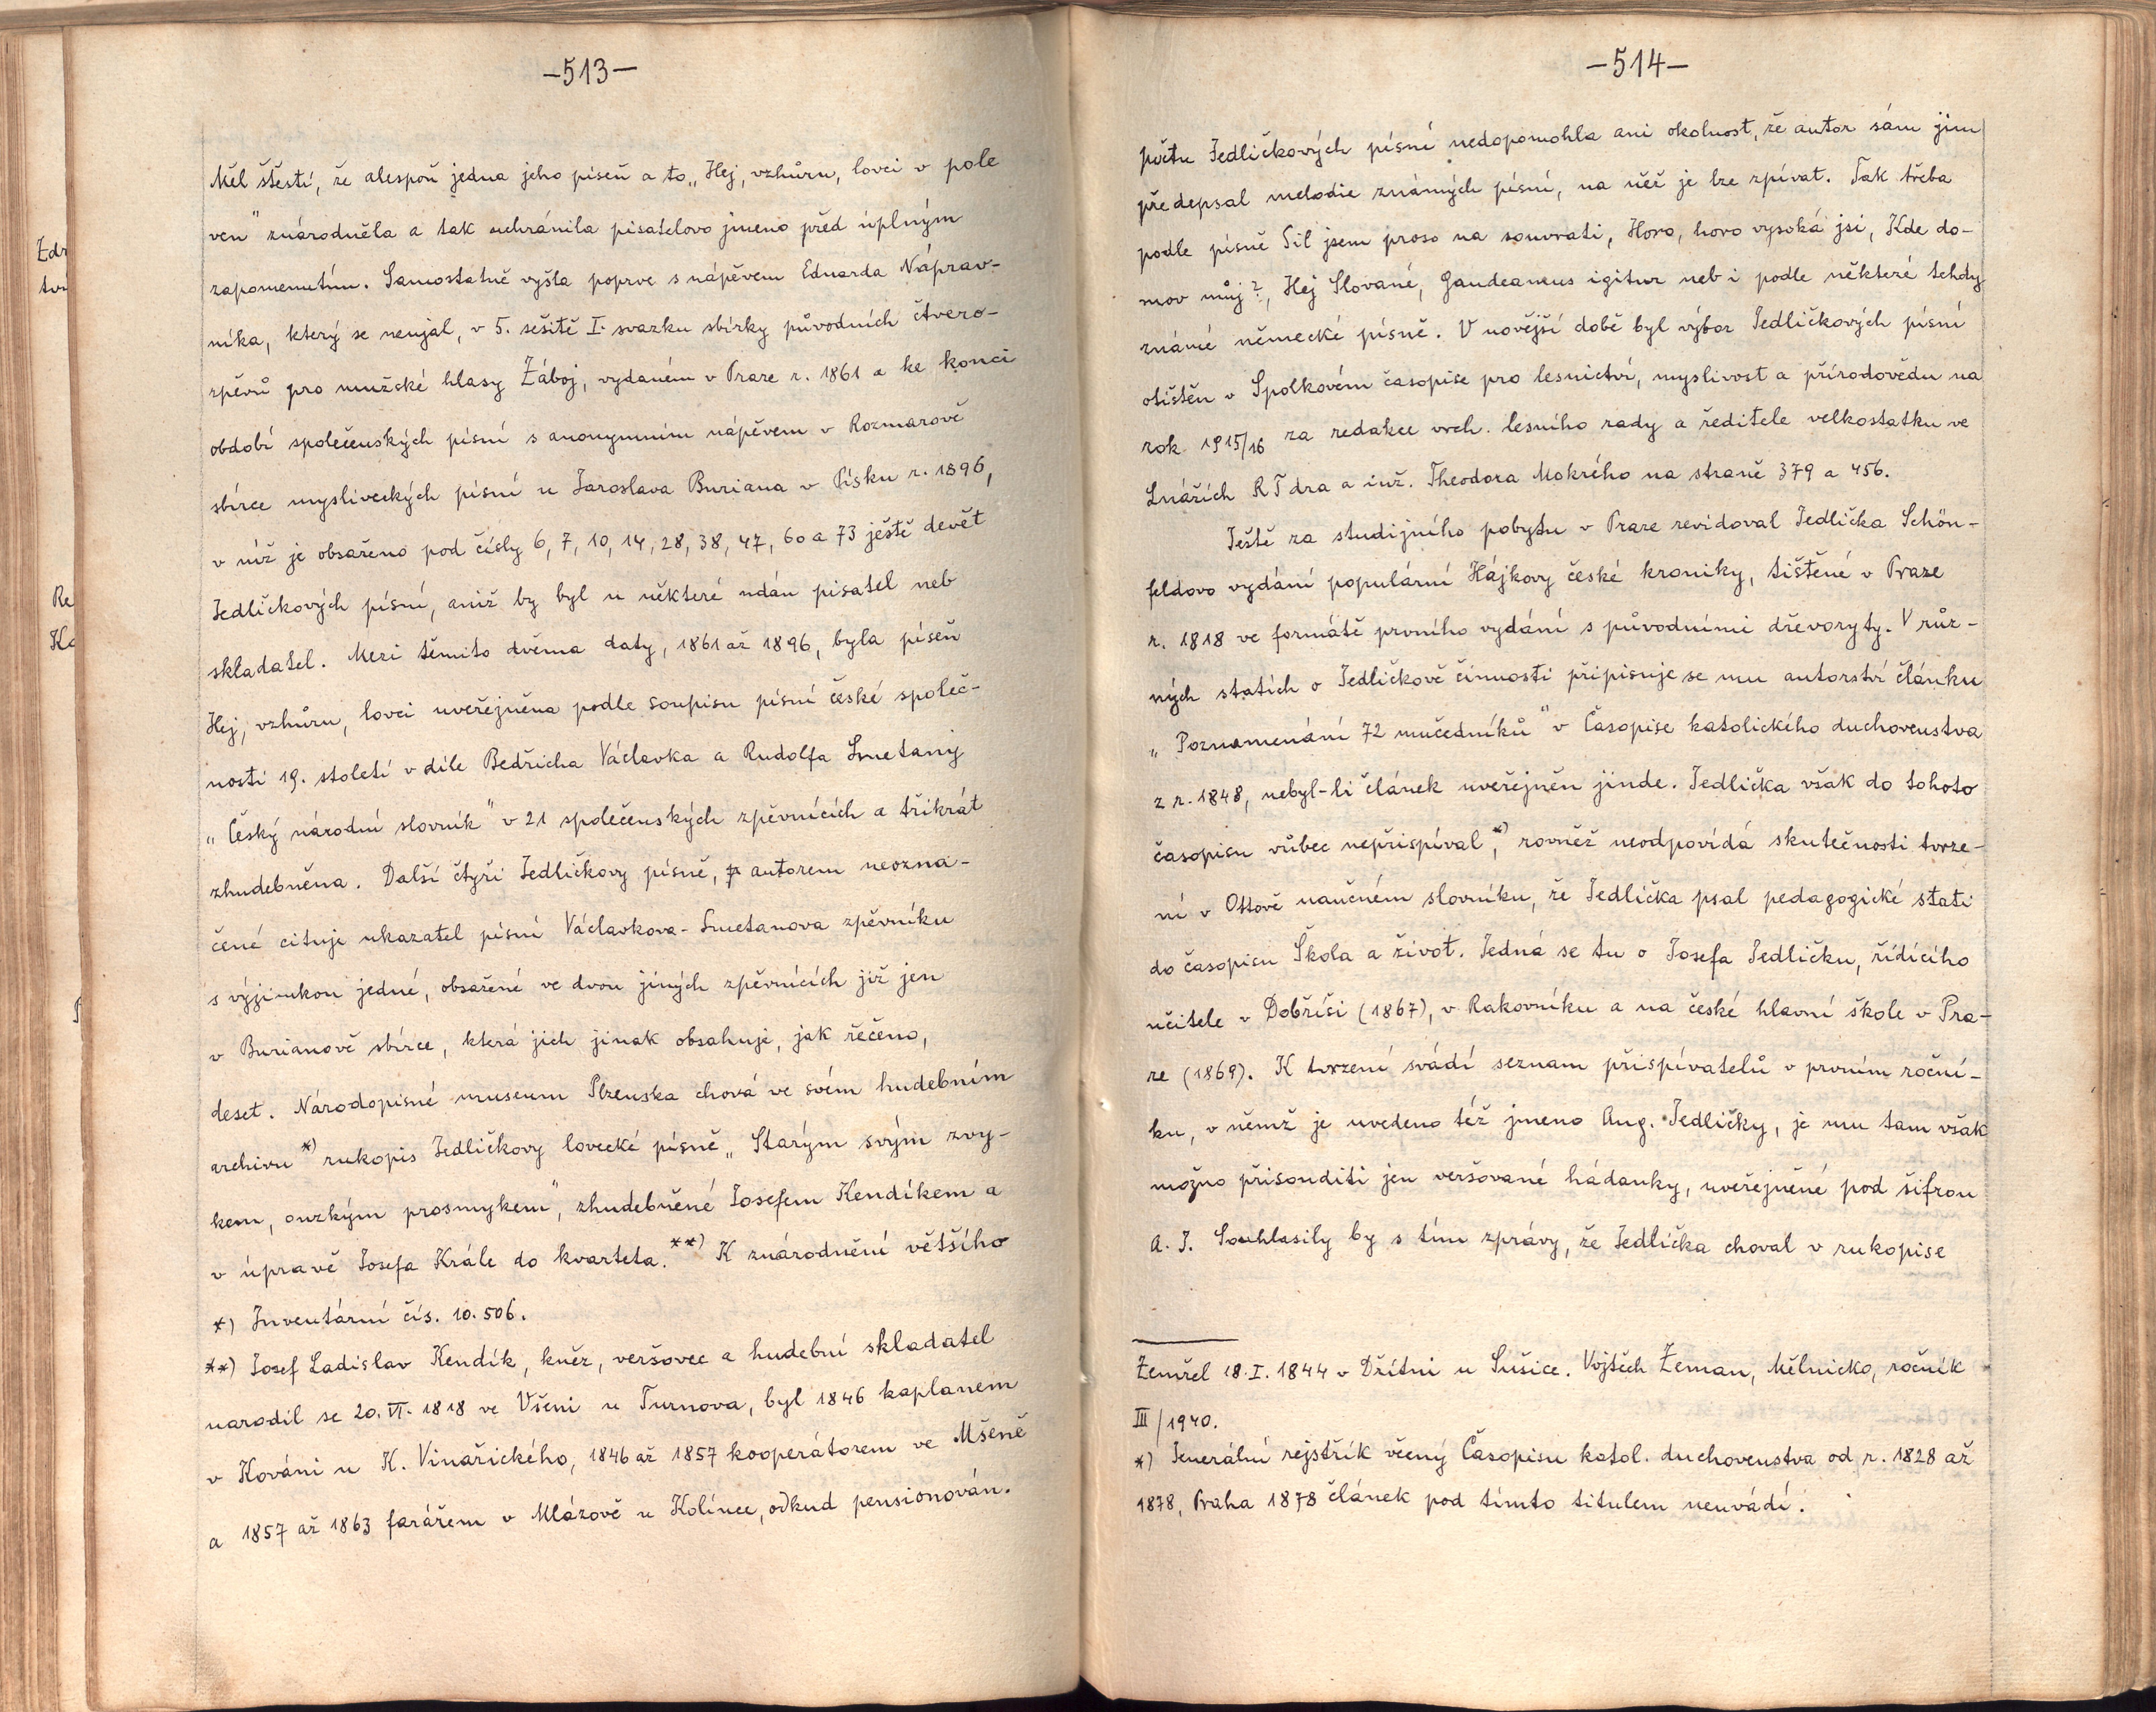 -513-
Měl štestí, že alespoň jedna jeho píseň a to „Hej, vzhůru, lovci v pole
ven" znárodněla a tak uchránila pisatelovo jmeno před úplným
zapomenutím. Samostatně vyšla poprve s nápěvem Eduarda Náprav-
níka, který se neujal, v 5. sešitě I. svazku sbírky původních čtvero-
zpěvů pro mužské hlasy Záboj, vydaném v Praze r. 1861 a ke konci
období společenských písní s anonymním nápěvem v Rozmarově
sbírce mysliveckých písní u Jaroslava Buriana v Písku r. 1896,
v níž je obsaženo pod čísly 6, 7, 10, 14, 28, 38, 47, 60 a 73 ještě devět
Jedličkových písní, aniž by byl u některé udán pisatel neb
skladatel. Mezi těmito dvěma daty, 1861 až 1896, byla píseň
Hej, vzhůru, lovci uveřejněna podle soupisu písní české společ-
nosti 19. století v díle Bedřicha Václavka a Rudolfa Smetany
„Český národní slovník" v 21 společenských zpěvnících a třikrát
zhudebněna. Další čtyři Jedličkovy písně, autorem neozna-
čené cituje ukazatel písní Václavkova-Smetanova zpěvníku
s výjimkou jedné, obsažené ve dvou jiných zpěvnících již jen
v Burianově sbírce, která jich jinak obsahuje, jak řečeno,
deset. Národopisné museum Plzenska chová ve svém hudebním
archivu *) rukopis Jedličkovy lovecké písně „Starým svým zvy-
kem, ouzkým prosmykem", zhudebněné Josefem Kendíkem a
v úpravě Josefa Krále do kvarteta. **) K znárodnění většího
*) Inventární čís. 10.506.
**) Josef Ladislav Kendík, kněz, veršovec a hudební skladatel
narodil se 20. VI. 1818 ve Všeni u Turnova, byl 1846 kaplanem
v Kováni u K. Vinařického, 1846 až 1857 kooperátorem ve Mšeně
a 1857 až 1863 farářem v Mlázově u Kolínce, odkud pensionován.
-514-
počtu Jedličkových písní nedopomohla ani okolnost, že autor sám jim
předepsal melodie známých písní, na něž je lze zpívat. Tak třeba
podle písně Sil jsem proso na souvrati, Horo, horo vysoká jsi, Kde do-
mov můj?, Hej Slované, Gaudeamus igitur neb i podle některé tehdy
známé německé písně. V novější době byl výbor Jedličkových písní
otištěn v Spolkovém časopise pro lesnictví, myslivost a přírodovědu na
rok 1915/16 za redakce vrch. lesního rady a ředitele velkostatku ve
Lnářích RTdra a inž. Theodora Mokrého na straně 379 a 456.
Ještě za studijního pobytu v Praze revidoval Jedlička Schön-
feldovo vydání populární Hájkovy české kroniky, tištěné v Praze
r. 1818 ve formátě prvního vydání s původními dřevoryty. V růz-
ných statích o Jedličkově činnosti připisuje se mu autorství článku
„Poznamenání 72 mučedníků" v Časopise katolického duchovenstva
z r. 1848, nebyl-li článek uveřejněn jinde. Jedlička však do tohoto
časopisu vůbec nepřispíval, *) rovněž neodpovídá skutečnosti tvrze-
ní v Ottově naučném slovníku, že Jedlička psal pedagogické stati
do časopisu Škola a život. Jedná se tu o Josefa Jedličku, řídícího
učitele v Dobříši (1867), v Rakovníku a na české hlavní škole v Pra-
ze (1869). K tvrzení svádí seznam přispívatelů v prvním roční-
ku, v němž je uvedeno též jmeno Aug. Jedličky, je mu tam však
možno přisouditi jen veršované hádanky, uveřejněné pod šifrou
A. J. Souhlasily by s tím zprávy, že Jedlička choval v rukopise
Zemřel 18. I. 1844 v Dřítni u Sušice. Vojtěch Zeman, Mělnicko, ročník
III/1940.
*) Jenerální rejstřík věcný Časopisu katol. duchovenstva od r. 1828 až
1878, Praha 1878 článek pod tímto titulem neuvádí.